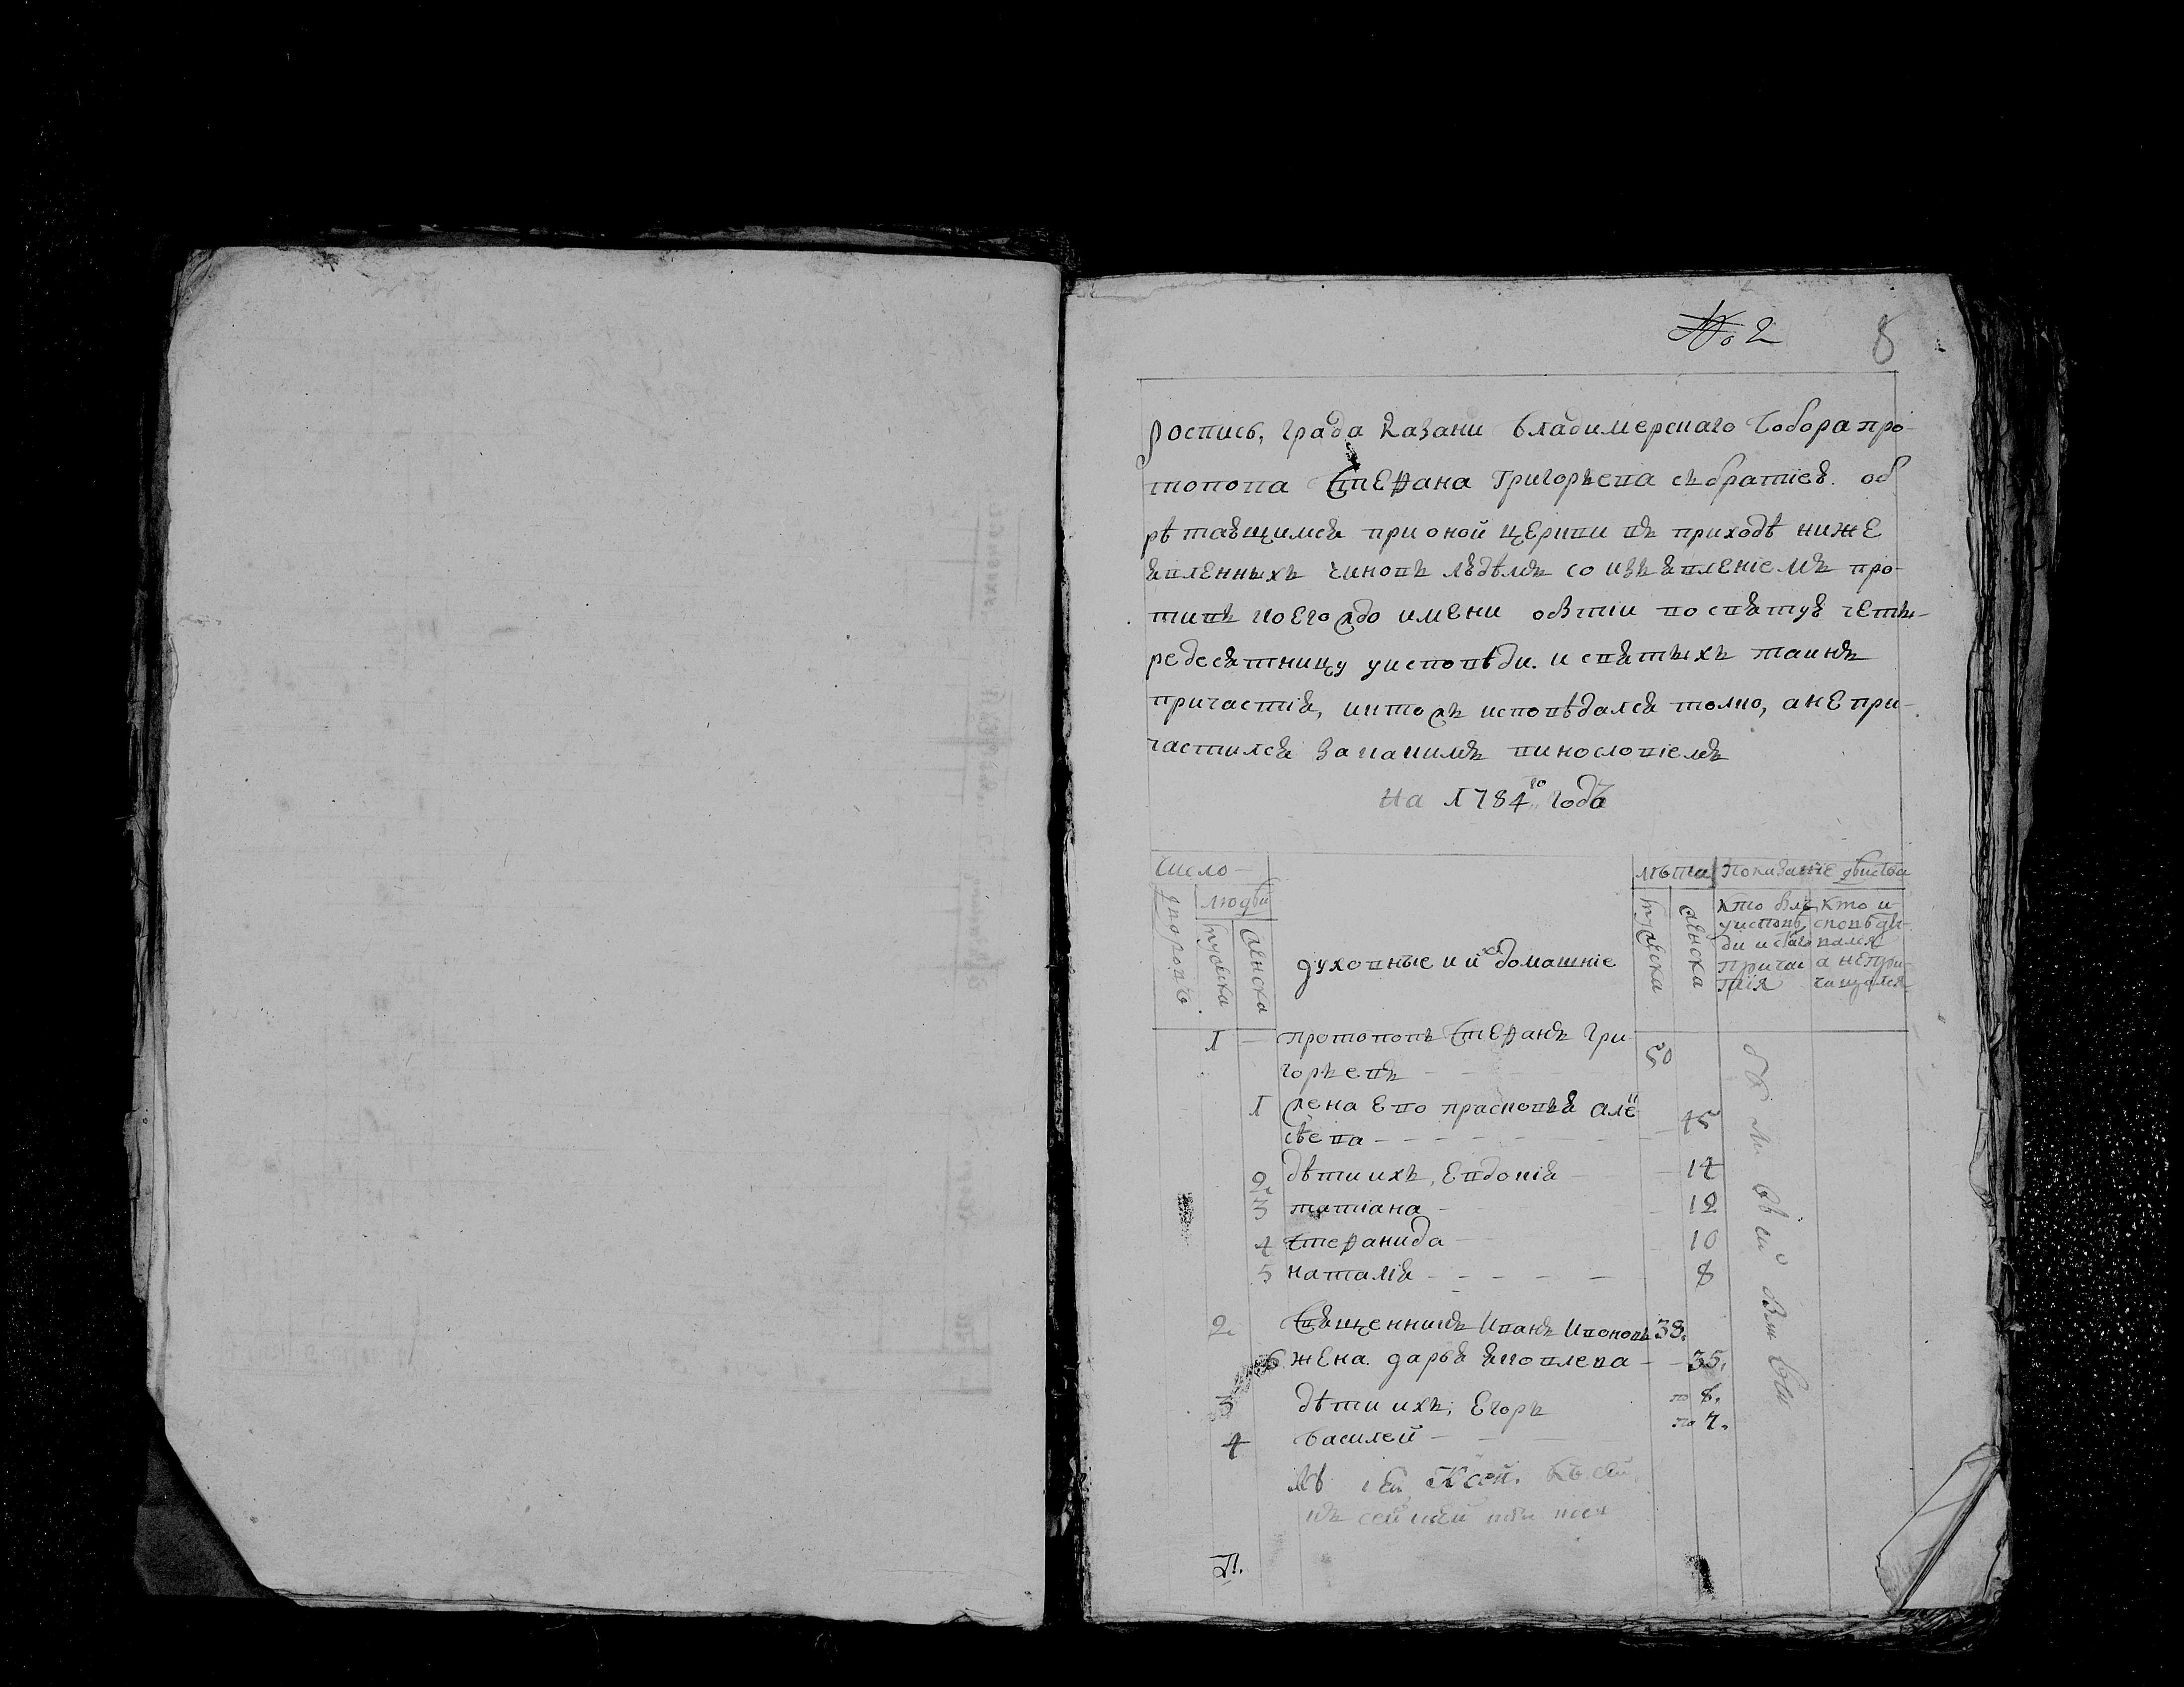 № 2
8
роспись, града Казани Владимерскаго Собора про-
топопа Стефана Григорьева събратіею. об
рѣтающимся при оной церкви въ приходѣ ниже
явленныхъ чиновъ людѣмъ со изъявленіемъ про-
тивъ коегождо имени о бытіи во святую четы-
редесятницу у исповѣди. и святыхъ таинъ
причастія, и ктожъ исповѣдался толко, а не при-
частился за какимъ винословіемъ
На 1784.го Года
Число
людѣи
дворовъ
мужеска
женска
духовные и ихъ домашніе
лѣта
мужеска
женска
Показаніе дѣиства
кто былъ
у исповѣ
ди и
Причас
тія
кто и
сповѣды
вался
а непри
чащался
1 протопопъ Стефанъ Гри 50
горьевъ
1 жена Ево прасковья але
ѣева 45
2 дѣти ихъ, Евдокія 14
3 татіана 12
4 Стефанида 10
5 наталія 8
2. Священникъ Иванъ Ивоновъ 38.
6 жена. дарья яковлева 35.
3 дѣти ихъ; Егоръ 8.
4 Василей 7.